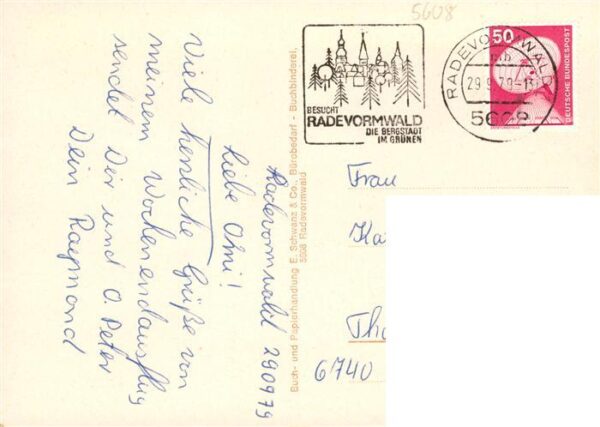 5608
Radevormwald 290979
Liebe Omi!
Viele herzliche Grüße von
meinem Wochenendausflug
sendet Dir und O. Peter
Dein Raymond
Buch- und Papierhandlung E. Schwanz & Co., Bürobedarf - Buchbinderei,
5608 Radevormwald
BESUCHT
RADEVORMWALD
DIE BERGSTADT
IM GRÜNEN
RADEVORMWALD
29.9.79
5608
50
DEUTSCHE BUNDESPOST
Frau
Ka
Th
6740